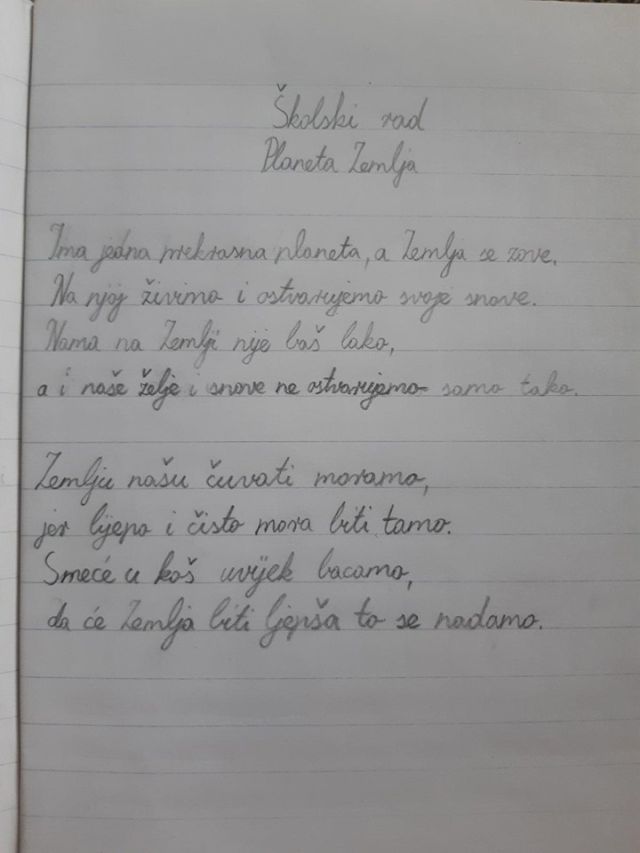 Školski rad
Planeta Zemlja
Ima jedna prekrasna planeta, a Zemlja se zove.
Na njoj živimo i ostvarujemo svoje snove.
Nama na Zemlji nije baš lako,
a i naše želje i snove ne ostvarujemo samo tako.
Zemlju našu čuvati moramo,
jer lijepo i čisto mora biti tamo.
Smeće u koš uvijek bacamo,
da će Zemlja biti ljepša to se nadamo.